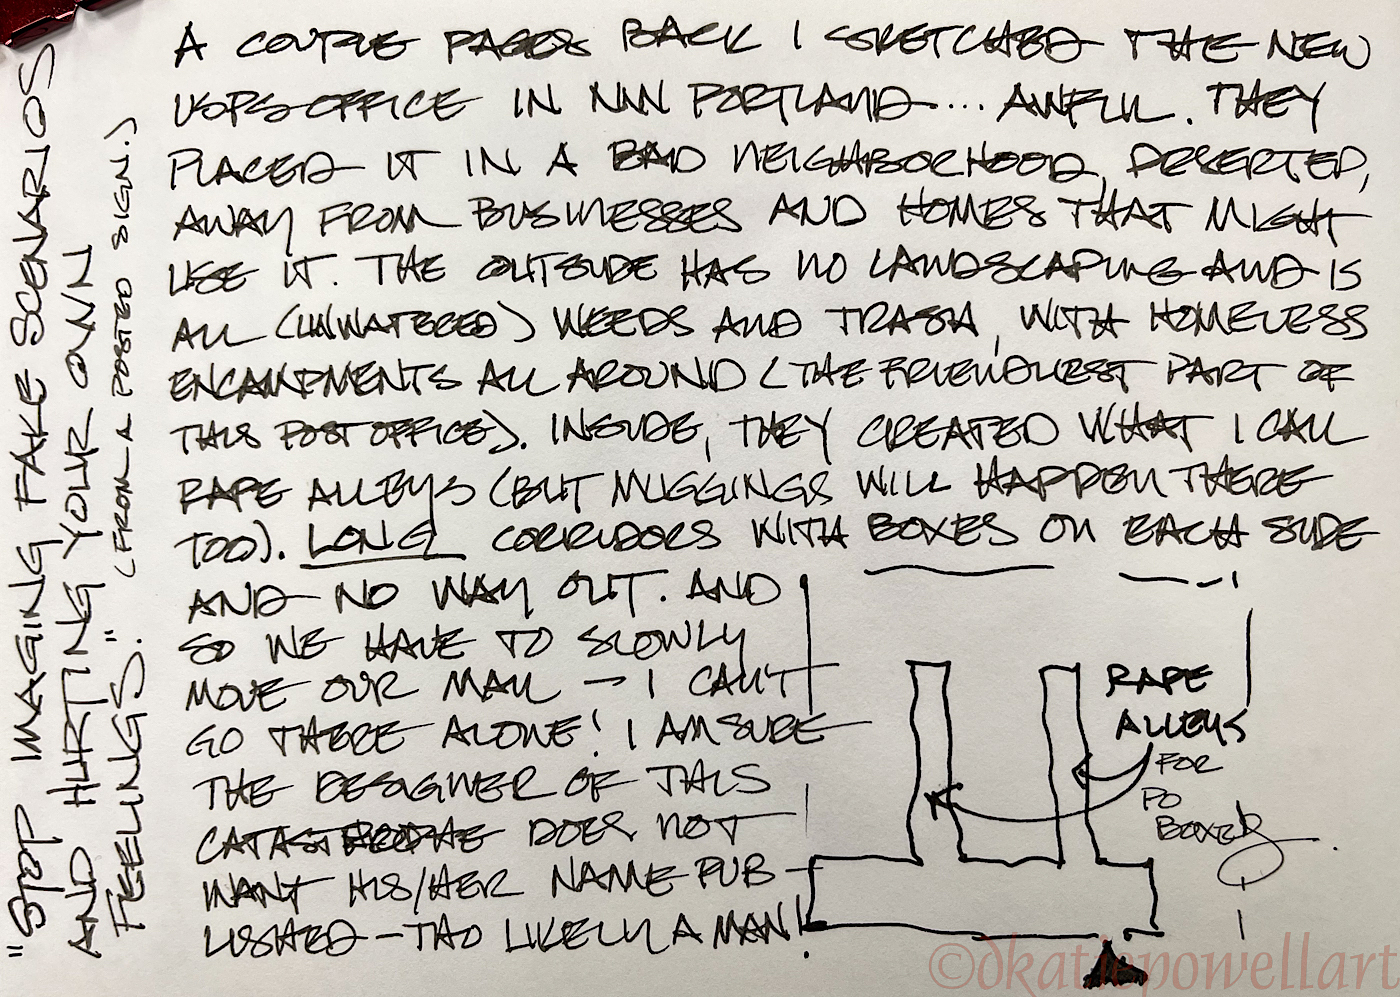 A COUPLE PAGES BACK I SKETCHED THE NEW
USPS OFFICE IN NW PORTLAND... AWFUL. THEY
PLACED IT IN A BAD NEIGHBORHOOD, DESERTED,
AWAY FROM BUSINESSES AND HOMES THAT MIGHT
USE IT. THE OUTSIDE HAS NO LANDSCAPING AND IS
ALL (UNWATERED) WEEDS AND TRASH, WITH HOMELESS
ENCAMPMENTS ALL AROUND (THE FRIENDLIEST PART OF
THIS POST OFFICE). INSIDE, THEY CREATED WHAT I CALL
RAPE ALLEYS (BUT MUGGINGS WILL HAPPEN THERE
TOO). LONG CORRIDORS WITH BOXES ON EACH SIDE
AND NO WAY OUT. AND
SO WE HAVE TO SLOWLY
MOVE OUR MAIL — I CAN'T
GO THERE ALONE! I AM SURE
THE DESIGNER OF THIS
CATASTROPHE DOES NOT
WANT HIS/HER NAME PUB-
LISHED — THO LIKELY A MAN!
RAPE
ALLEYS
FOR
PO
BOXES
"STOP IMAGING FAKE SCENARIOS
AND HURTING YOUR OWN
FEELINGS."
(FROM A POSTED SIGN.)
©dkatiepowellart